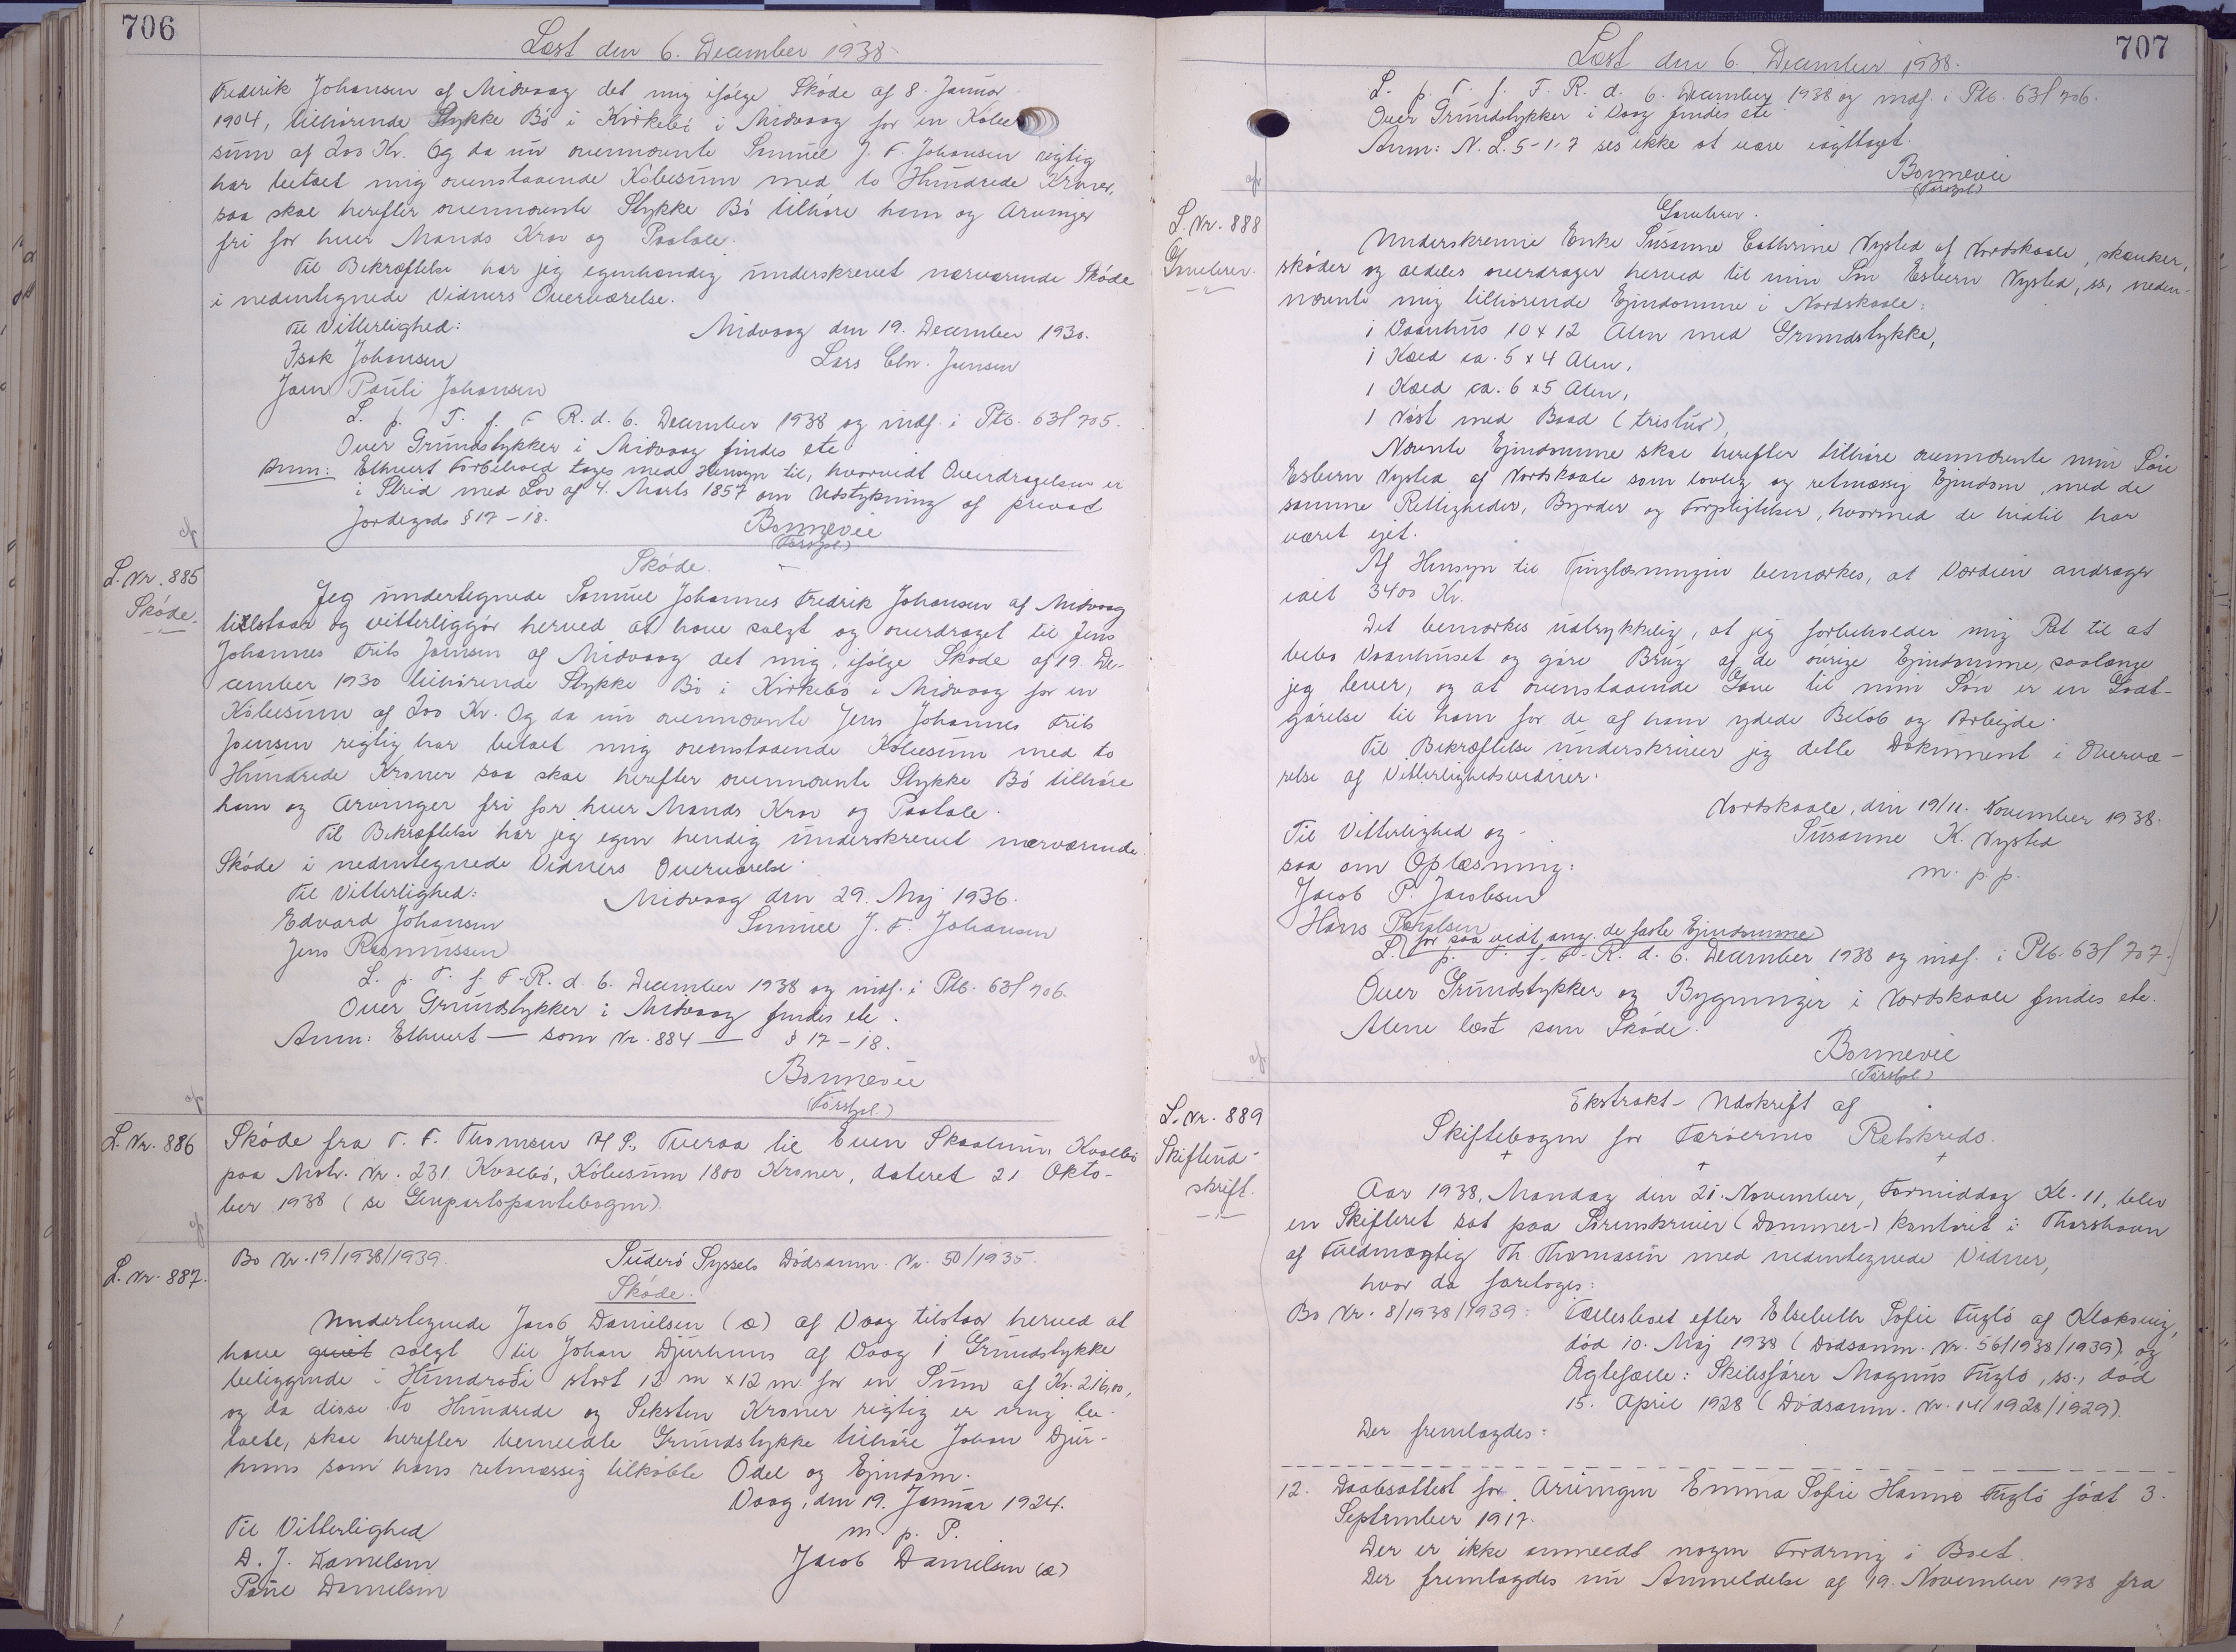 706
Læst den 6. December 1938
Frederik Johansen af Midvaag det mig ifølge Skøde af 8. Januar
1904, tilhørende Stykke Bø i Kirkebø i Midvaag for en Købe
sum af 200 Kr. Og da nu ovennævnte Samuel J. F. Johansen rigtig
har betalt mig ovenstaaende Købesum med to Hundrede Kroner,
saa skal herefter ovennævnte Stykke Bø tilhøre ham og Arvinger
fri for hver Mands Krav og Paatale.
Til Bekræftelse har jeg egenhændig underskrevet nærværende Skøde
i nedentegnede Vidners Overværelse.
Til Vitterlighed:
Midvaag den 19. December 1930.
Isak Johansen
Lars Chr. Jensen
Joen Pauli Johansen
L. p. T. f. F R. d. 6. December 1938 og indf. i Ptb. 63f 705.
Over Grundstykker i Midvaag findes etc
Anm: Ethvert Forbehold tages med Hensyn til, hvorvidt Overdragelsen er
i Strid med Lov af 4. Marts 1857 om Udstykning af privat
Jordegods § 17 - 18.
Bonnevie
(Førstpl.)
L. Nr. 885
Skøde.
Skøde.
Jeg undertegnede Samuel Johannes Fredrik Johansen af Midvaag
tilstaar og vitterliggør herved at have solgt og overdraget til Jens
Johannes Frits Joensen af Midvaag det mig, ifølge Skøde af 19. De-
cember 1930 tilhørende Stykke Bø i Kirkebø i Midvaag for en
Købesum af 200 Kr. Og da nu ovennævnte Jens Johannes Frits
Joensen rigtig har betalt mig ovenstaaende Købesum med to
Hundrede Kroner saa skal herefter ovennævnte Stykke Bø tilhøre
ham og Arvinger fri for hver Mands Krav og Paatale.
Til Bekræftelse har jeg egen hendig underskrevet nærværende
Skøde i nedentegnede Vidners Overværelse.
Til Vitterlighed:
Midvaag den 29. Maj 1936.
Edvard Johansen
Samuel J. F. Johansen
Jens Rasmussen
L. p. T. f. F-R. d. 6. December 1938 og indf. i Ptb. 63f 706.
Over Grundstykker i Midvaag findes etc.
Anm: Ethvert — som Nr. 884 — § 17 - 18.
Bonnevie
(Førstpl.)
L. Nr. 886
Skøde fra T. F. Thomsen A/S, Tveraa til Even Skaalum, Kvalbø
paa Matr. Nr. 231 Kvalbø, Købesum 1800 Kroner, dateret 21 Okto-
ber 1938 (se Genpartspantebogen).
L. Nr. 887.
Bo Nr. 19/1938/1939.
Suderø Syssels Dødsanm. Nr. 50/1935.
Skøde.
Undertegnede Jacob Danielsen (æ) af Vaag tilstaar herved at
have givet solgt til Johan Djurhuus af Vaag 1 Grundstykke
beliggende i Hundraði stort 12 m x 12 m for en Sum af Kr. 216,00,
og da disse To Hundrede og Seksten Kroner rigtig er mig be-
talte, skal herefter bemeldte Grundstykke tilhøre Johan Djur-
huus som hans retmæssig tilkøbte Odel og Ejendom.
Vaag, den 19. Januar 1924.
Til Vitterlighed
m. p. P.
D. J. Danielsen
Jacob Danielsen (æ)
Poul Danielsen
707
Læst den 6. December 1938.
L. p. T. f. F. R. d. 6. December 1938 og indf. i Ptb. 63f 706.
Over Grundstykker i Vaag findes etc
Anm: N. L. 5-1-7 ses ikke at være iagttaget.
Bonnevie
(Førstpl.)
L. Nr. 888
Gavebrev.
Gavebrev.
Underskrevne Enke Susanne Cathrine Nysted af Nordskaale, skænker,
skøder og aldeles overdrager herved til min Søn Esbern Nysted, ss, neden-
nævnte mig tilhørende Ejendomme i Nordskaale:
1 Vaanhus 10 x 12 Alen med Grundstykke,
1 Kæld ca. 5 x 4 Alen,
1 Kæld ca. 6 x 5 Alen,
1 Nøst med Baad (tristur),
Nævnte Ejendomme skal herefter tilhøre ovennævnte min Søn
Esbern Nysted af Nordskaale som lovlig og retmæssig Ejendom, med de
samme Rettigheder, Byrder og Forpligtelser, hvormed de hidtil har
været ejet.
Af Hensyn til Tinglæsningen bemærkes, at Værdien andrager
ialt 3400 Kr.
Det bemærkes udtrykkelig, at jeg forbeholder mig Ret til at
bebo Vaanhuset og gøre Brug af de øvrige Ejendomme, saalænge
jeg lever, og at ovenstaaende Gave til min Søn er en Godt-
gørelse til ham for de af ham ydede Beløb og Arbejde.
Til Bekræftelse underskriver jeg dette Dokument i Overvæ-
relse af Vitterlighedsvidner.
Nordskaale, den 19/11. November 1938.
Til Vitterlighed og
Susanne K. Nysted
saa om Oplæsning:
m. p. p.
Jacob P. Jacobsen
Hans Poulsen
for saa vidt ang. de faste Ejendomme
L. p. T. f. F. R. d. 6. December 1938 og indf. i Ptb. 63f 707.
Over Grundstykker og Bygninger i Nordskaale findes etc.
Alene læst som Skøde.
Bonnevie
(Førstpl.)
L. Nr. 889
Skifteud-
skrift.
Ekstrakt-Udskrift af
Skiftebogen for Færøernes Retskreds.
Aar 1938, Mandag den 21. November, Formiddag Kl. 11, blev
en Skifteret sat paa Sorenskriver (Dommer-) kontoret i Thorshavn
af Fuldmægtig Th. Thomasen med nedentegnede Vidner,
hvor da foretoges:
Bo Nr. 8/1938/1939: Fællesboet efter Elsebeth Sofie Fuglø af Klaksvig,
død 10. Maj 1938 (Dødsanm. Nr. 56/1938/1939) og
Ægtefælle: Skibsfører Magnus Fuglø, ss., død
15. April 1928 (Dødsanm. Nr. 14/1928/1929).
Der fremlagdes:
12. Daabsattest for Arvingen Emma Sofie Hanna Fuglø født 3.
September 1917.
Der er ikke anmeldt nogen Fordring i Boet.
Der fremlagdes nu Anmeldelse af 19. November 1938 fra